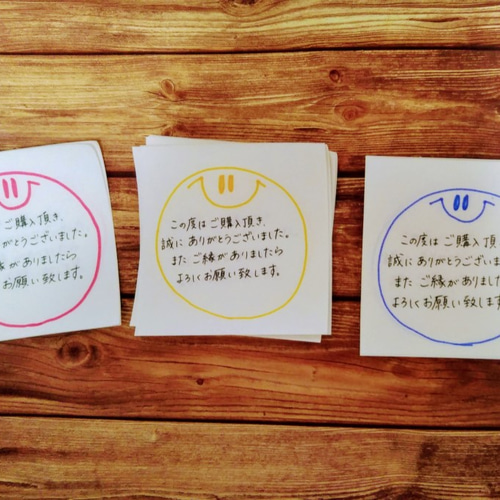 ご購入頂き、
がとうございました。
縁がありましたら
お願い致します。
この度はご購入頂き、
誠にありがとうございました。
またご縁がありましたら
よろしくお願い致します。
この度はご購入頂
誠にありがとうございま
またご縁がありまし
よろしくお願い致しま